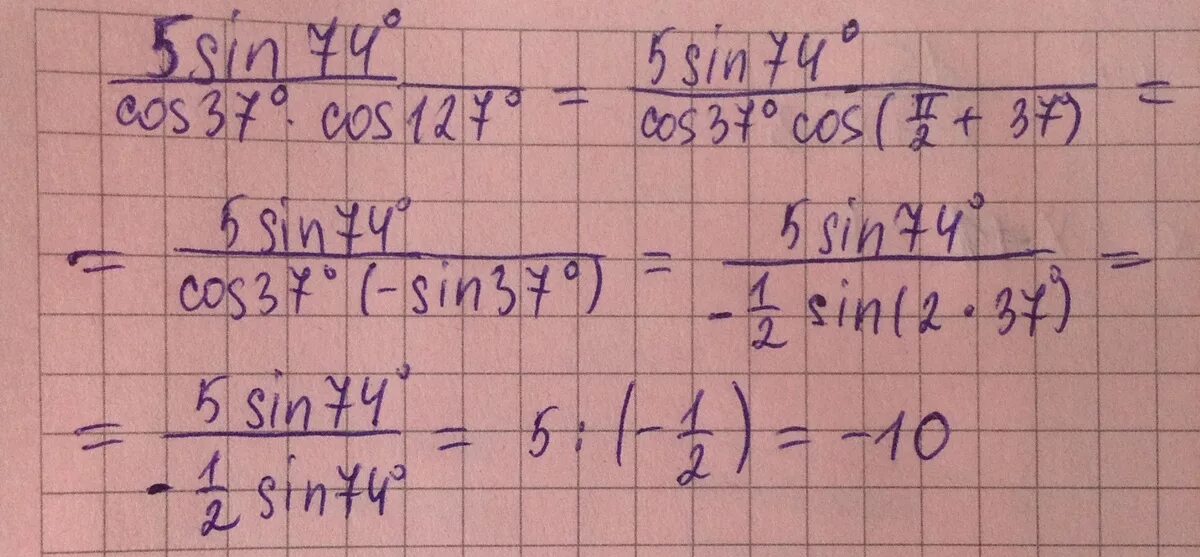 5 sin 74° / cos 37° · cos 127° = 5 sin 74° / cos 37° cos(π/2 + 37°) =
= 5 sin 74° / cos 37° (- sin 37°) = 5 sin 74° / - 1/2 sin(2 · 37°) =
= 5 sin 74° / - 1/2 sin 74° = 5 : (- 1/2) = -10